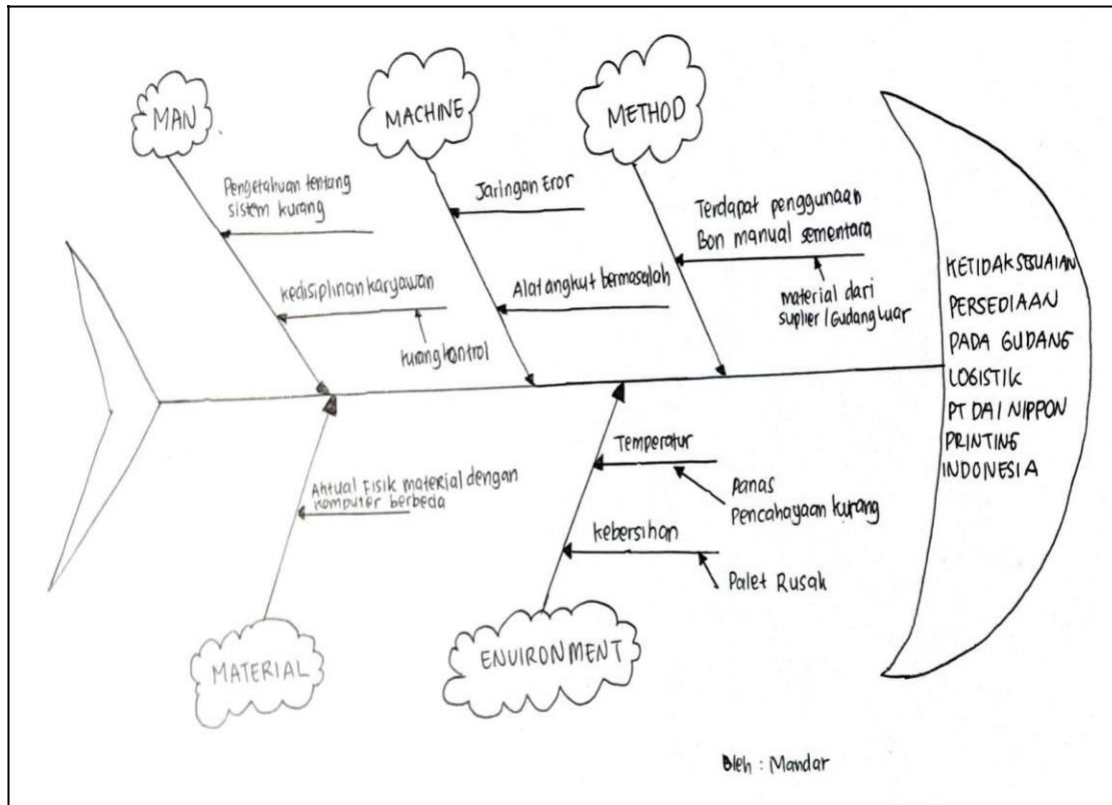 MAN
MACHINE
METHOD
Pengetahuan tentang
sistem kurang
kedisiplinan karyawan
kurang kontrol
Jaringan Eror
Alat angkut bermasalah
Terdapat penggunaan
Bon manual sementara
material dari
suplier / Gudang luar
KETIDAKSESUAIAN
PERSEDIAAN
PADA GUDANG
LOGISTIK
PT DAI NIPPON
PRINTING
INDONESIA
Aktual Fisik material dengan
komputer berbeda
Temperatur
Panas
Pencahayaan kurang
kebersihan
Palet Rusak
MATERIAL
ENVIRONMENT
Oleh : Mandar